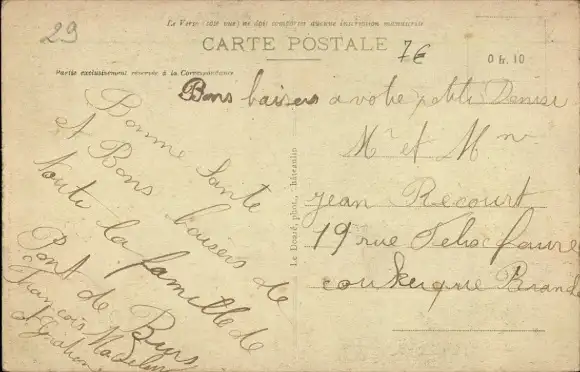 29
Le Verso (côté vue) ne doit comporter aucune inscription manuscrite
CARTE POSTALE
7€
0 fr. 10
Partie exclusivement réservée à la Correspondance
Bons baisers a votre petite Denise
Bonne Santé
et Bons baisers de
toute la famille de
Pont de
François
et
Le Doaré, phot., Châteaulin
Mr et Mme
Jean Recourt
19 rue Felix faure
coukerque Branche